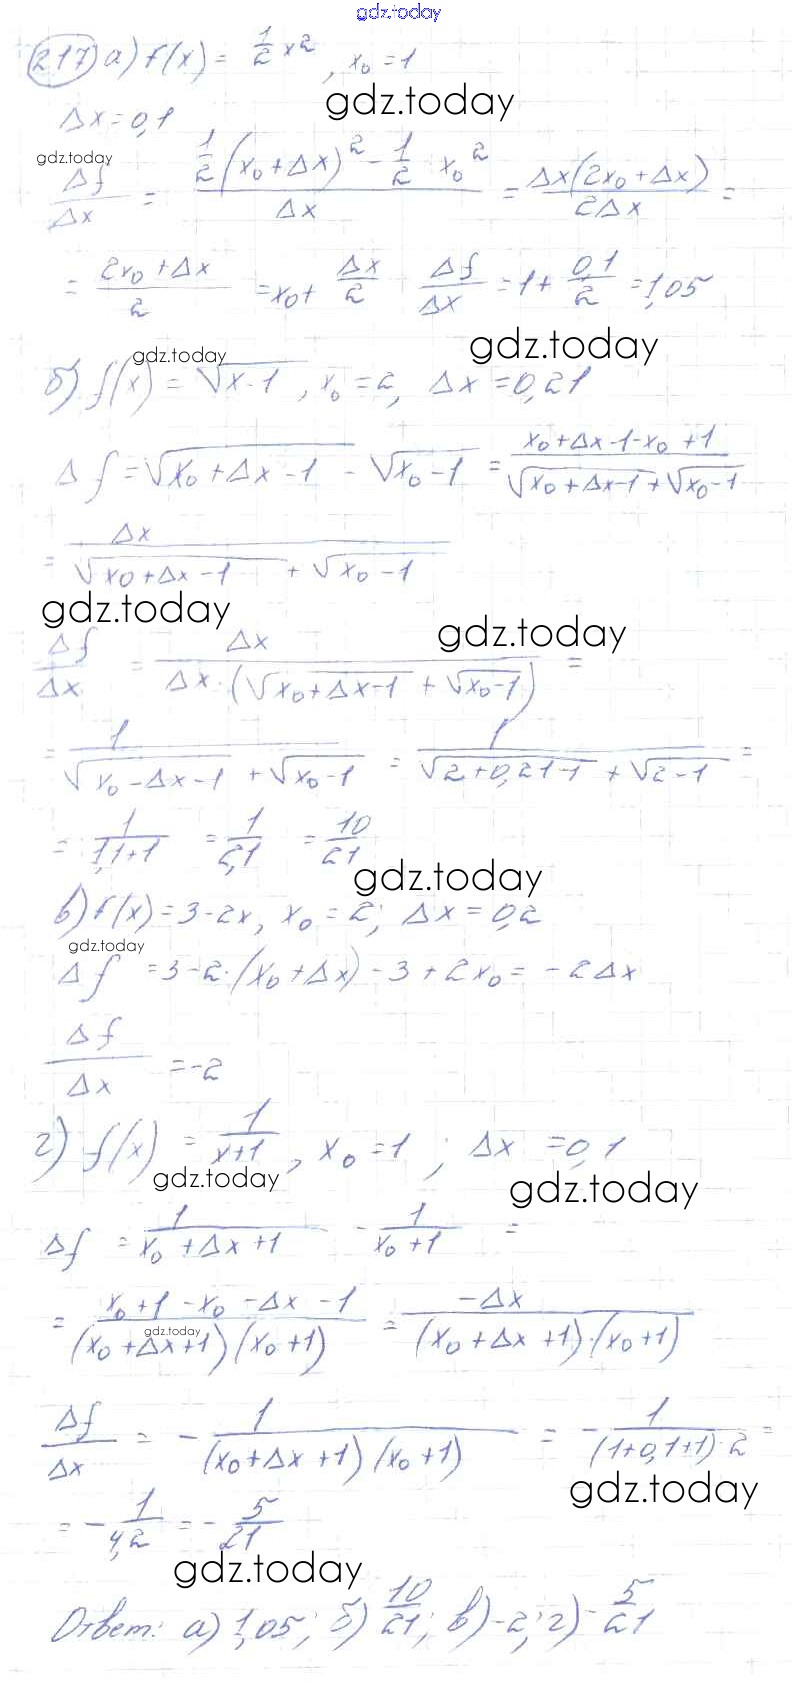 gdz.today
217) а) f(x) = 1/2 x², x₀ = 1
gdz.today
Δx = 0,1
gdz.today
Δf/Δx = (1/2 (x₀ + Δx)² - 1/2 x₀²)/Δx = Δx(2x₀ + Δx)/2Δx =
= (2x₀ + Δx)/2 = x₀ + Δx/2 Δf/Δx = 1 + 0,1/2 = 1,05
gdz.today
gdz.today
б) f(x) = √(x-1), x₀ = 2, Δx = 0,21
Δf = √(x₀ + Δx - 1) - √(x₀ - 1) = (x₀ + Δx - 1 - x₀ + 1)/(√(x₀ + Δx - 1) + √(x₀ - 1))
= Δx/(√(x₀ + Δx - 1) + √(x₀ - 1))
gdz.today
gdz.today
Δf/Δx = Δx/(Δx · (√(x₀ + Δx - 1) + √(x₀ - 1))) =
= 1/(√(x₀ - Δx - 1) + √(x₀ - 1)) = 1/(√(2 + 0,21 - 1) + √(2 - 1)) =
= 1/(1,1 + 1) = 1/2,1 = 10/21
gdz.today
в) f(x) = 3 - 2x, x₀ = 2; Δx = 0,2
gdz.today
Δf = 3 - 2·(x₀ + Δx) - 3 + 2x₀ = -2Δx
Δf/Δx = -2
г) f(x) = 1/(x+1), x₀ = 1; Δx = 0,1
gdz.today
gdz.today
Δf = 1/(x₀ + Δx + 1) - 1/(x₀ + 1) =
= (x₀ + 1 - x₀ - Δx - 1)/((x₀ + Δx + 1)(x₀ + 1)) = -Δx/((x₀ + Δx + 1)·(x₀ + 1))
gdz.today
Δf/Δx = - 1/((x₀ + Δx + 1)(x₀ + 1)) = - 1/((1 + 0,1 + 1)·2) =
gdz.today
= - 1/4,2 = - 5/21
gdz.today
Ответ: а) 1,05; б) 10/21; в) -2; г) - 5/21